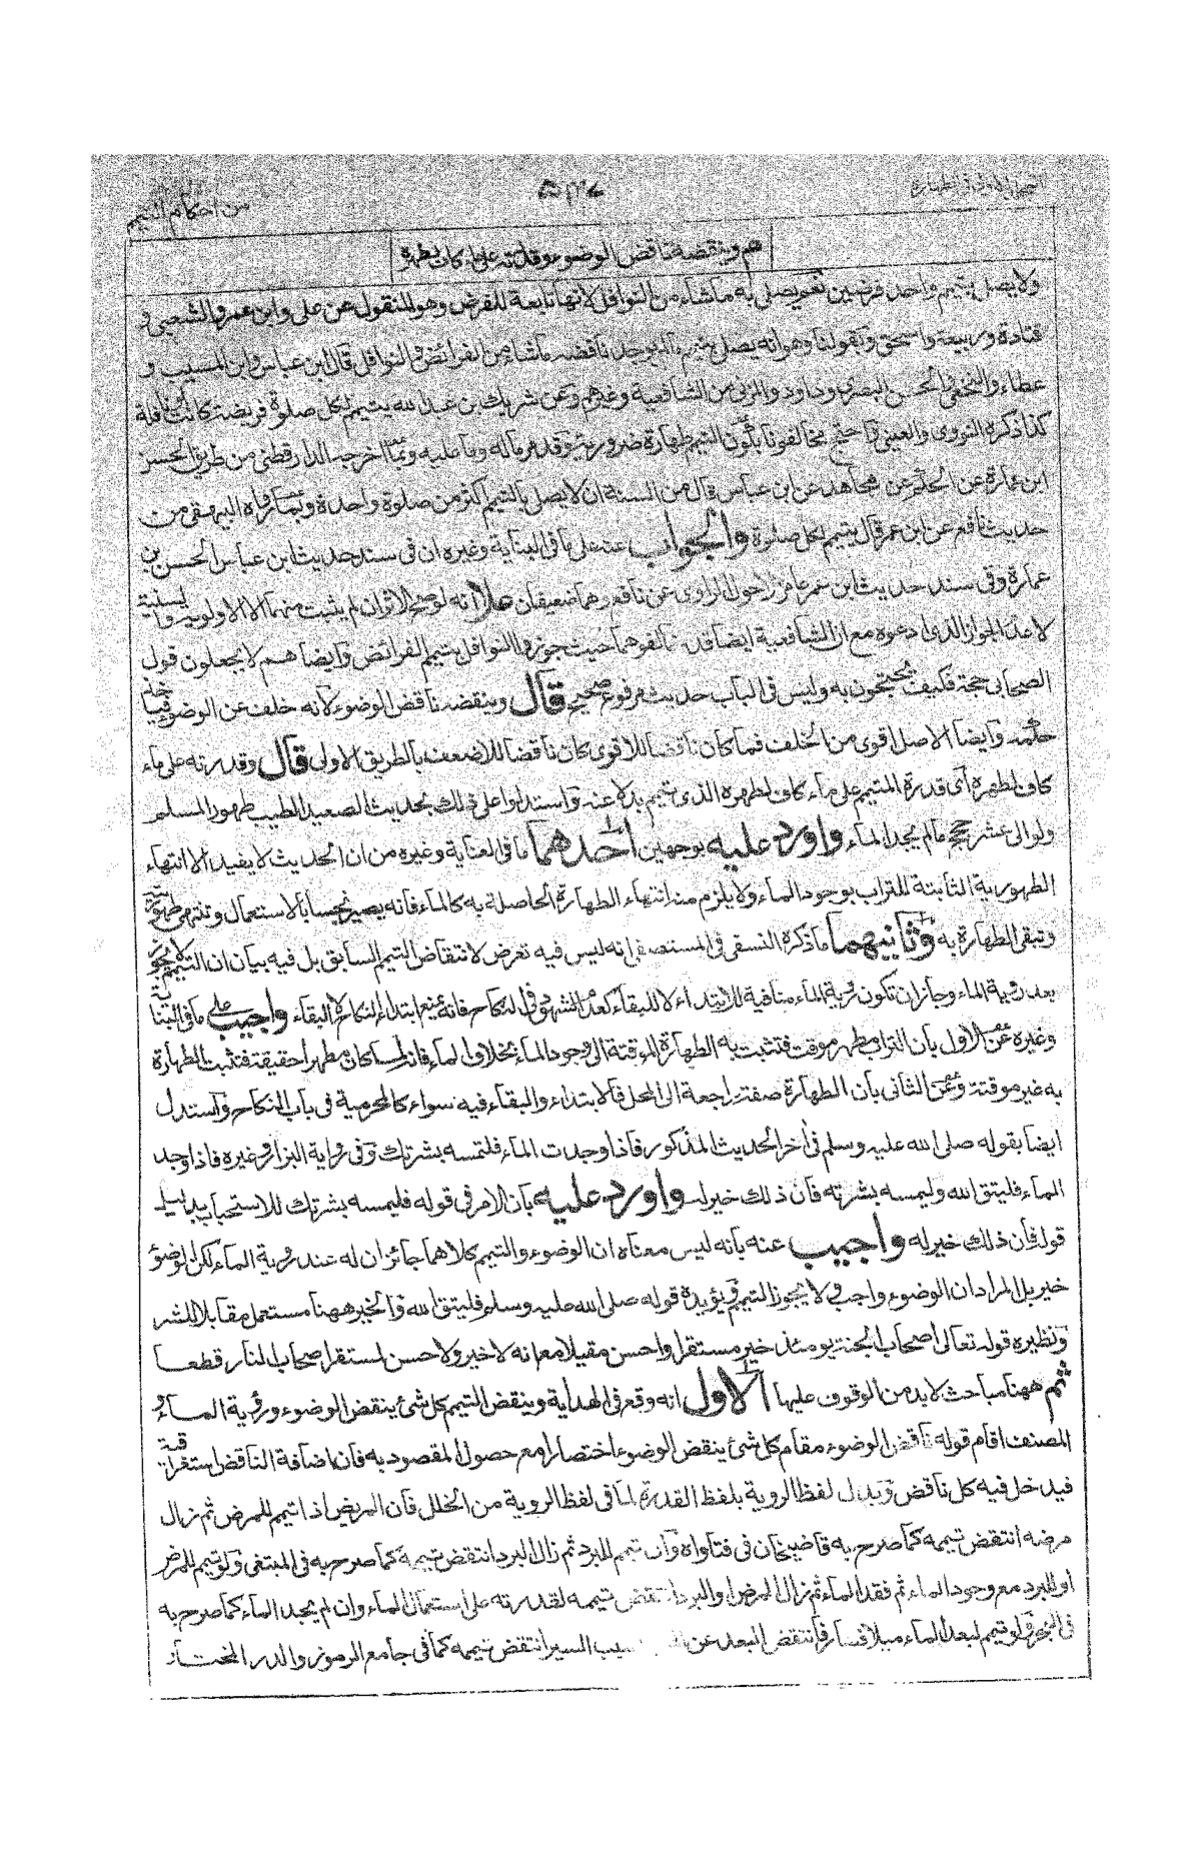 من احكام التيمم
م وينقضه ناقض الوضوء وقدرته على ماء كاف لطهره
ولا يصلى بتيمم واحد فرضين نعم يصلى به ما شاء من النوافل لانها تابعة للفرض وهو المنقول عن على وابن عمر والشعبى و
قتادة وربيعة واسحق وبقولنا وهو انه يصلى بتيممه ما لم يوجد ناقضه ما شاء من الفرائض والنوافل قال ابن عباس وابن المسيب و
عطاء والنخعى والحسن البصرى وداود والمزنى من الشافعية وغيرهم وعن شريك بن عبد الله يتيمم لكل صلوة فريضة كانت او نافلة
كذا ذكره النووى والعينى واحتج مخالفونا بكون التيمم طهارة ضرورية وقد مر ماله وما عليه وبما اخرجه الدارقطنى من طريق الحسن
ابن عمارة عن الحكم عن مجاهد عن ابن عباس قال من السنة ان لا يصلى بالتيمم اكثر من صلوة واحدة وبما رواه البيهقى من
حديث نافع عن ابن عمر قال يتيمم لكل صلوة والجواب عنه على ما فى البناية وغيره ان فى سند حديث ابن عباس الحسن بن
عمارة وفى سند حديث ابن عمر عامر الاحول الراوى عن نافع وهما ضعيفان علا انه لو صح الاثران لم يثبت منهما الا الاولوية والسنية
لا عدم الجواز الذى ادعوه مع ان الشافعية ايضا قد خالفوهما حيث جوزوا النوافل بتيمم الفرائض وايضا هم لا يجعلون قول
الصحابى حجة فكيف يحتجون به وليس فى الباب حديث مرفوع صحيح قال وينقضه ناقض الوضوء لانه خلف عن الوضوء فياخذ
حكمه وايضا الاصل اقوى من الخلف فما كان ناقضا للاقوى كان ناقضا للاضعف بالطريق الاولى قال وقدرته على ماء
كاف لطهره اى قدرة المتيمم على ماء كاف لطهره الذى تيمم بدلا عنه واستدلوا على ذلك بحديث الصعيد الطيب طهور المسلم
ولو الى عشر حجج ما لم يجد الماء واورد عليه بوجهين احدهما ما فى العناية وغيره من ان الحديث لا يفيد الا انتهاء
الطهورية الثابتة للتراب بوجود الماء ولا يلزم منه انتهاء الطهارة الحاصلة به كالماء فانه يصير نجسا بالاستعمال وتنتهى طهوريته
وتبقى الطهارة به وثانيهما ما ذكره النسفى فى المستصفى انه ليس فيه تعرض لانتقاض التيمم السابق بل فيه بيان ان التيمم لا يجوز
بعد رؤية الماء وجاز ان تكون رؤية الماء منافية للابتداء لا للبقاء كعدم الشهود فى النكاح فانه يمنع ابتداء النكاح لا البقاء واجيب على ما فى البناية
وغيره عن الاول بان التراب مطهر موقت فتثبت به الطهارة الموقتة الى وجود الماء بخلاف الماء فانه لما كان مطهرا حقيقة فتثبت الطهارة
به غير موقتة وعن الثانى بان الطهارة صفة راجعة الى المحل فالابتداء والبقاء فيه سواء كالمحرمية فى باب النكاح واستدل
ايضا بقوله صلى الله عليه وسلم فى اخر الحديث المذكور فاذا وجدت الماء فلتمسه بشرتك وفى رواية البزار وغيره فاذا وجد
الماء فليتق الله وليمسه بشرته فان ذلك خير له واورد عليه بان الامر فى قوله فليمسه بشرتك للاستحباب بدليل
قوله فان ذلك خير له واجيب عنه بانه ليس معناه ان الوضوء والتيمم كلاهما جائزان له عند رؤية الماء لكن الوضوء
خير بل المراد ان الوضوء واجب ولا يجوز التيمم ويؤيده قوله صلى الله عليه وسلم فليتق الله والخير ههنا مستعمل مقابلا للشر
ونظيره قوله تعالى اصحاب الجنة يومئذ خير مستقرا واحسن مقيلا مع انه لا خير ولا حسن لمستقر اصحاب النار قطعا
ثم ههنا مباحث لا بد من الوقوف عليها الاول انه وقع فى الهداية وينقض التيمم كل شئ ينقض الوضوء ورؤية الماء و
المصنف اقام قوله ناقض الوضوء مقام كل شئ ينقض الوضوء اختصارا مع حصول المقصود به فان اضافة الناقض استغراقية
فيدخل فيه كل ناقض وبدل لفظ الروية بلفظ القدرة لما فى لفظ الروية من الخلل فان المريض اذا تيمم للمرض ثم زال
مرضه انتقض تيممه كما صرح به قاضيخان فى فتاواه وان تيمم للبرد ثم زال البرد انتقض تيممه كما صرح به فى المبتغى ولو تيمم للمرض
او للبرد مع وجود الماء ثم فقد الماء ثم زال المرض او البرد انتقض تيممه لقدرته على استعمال الماء وان لم يجد الماء كما صرح به
فى البحر ولو تيمم لبعد الماء ميلا فسار فانتقض البعد عن بسبب السير انتقض تيممه كما فى جامع الرموز والدر المختار